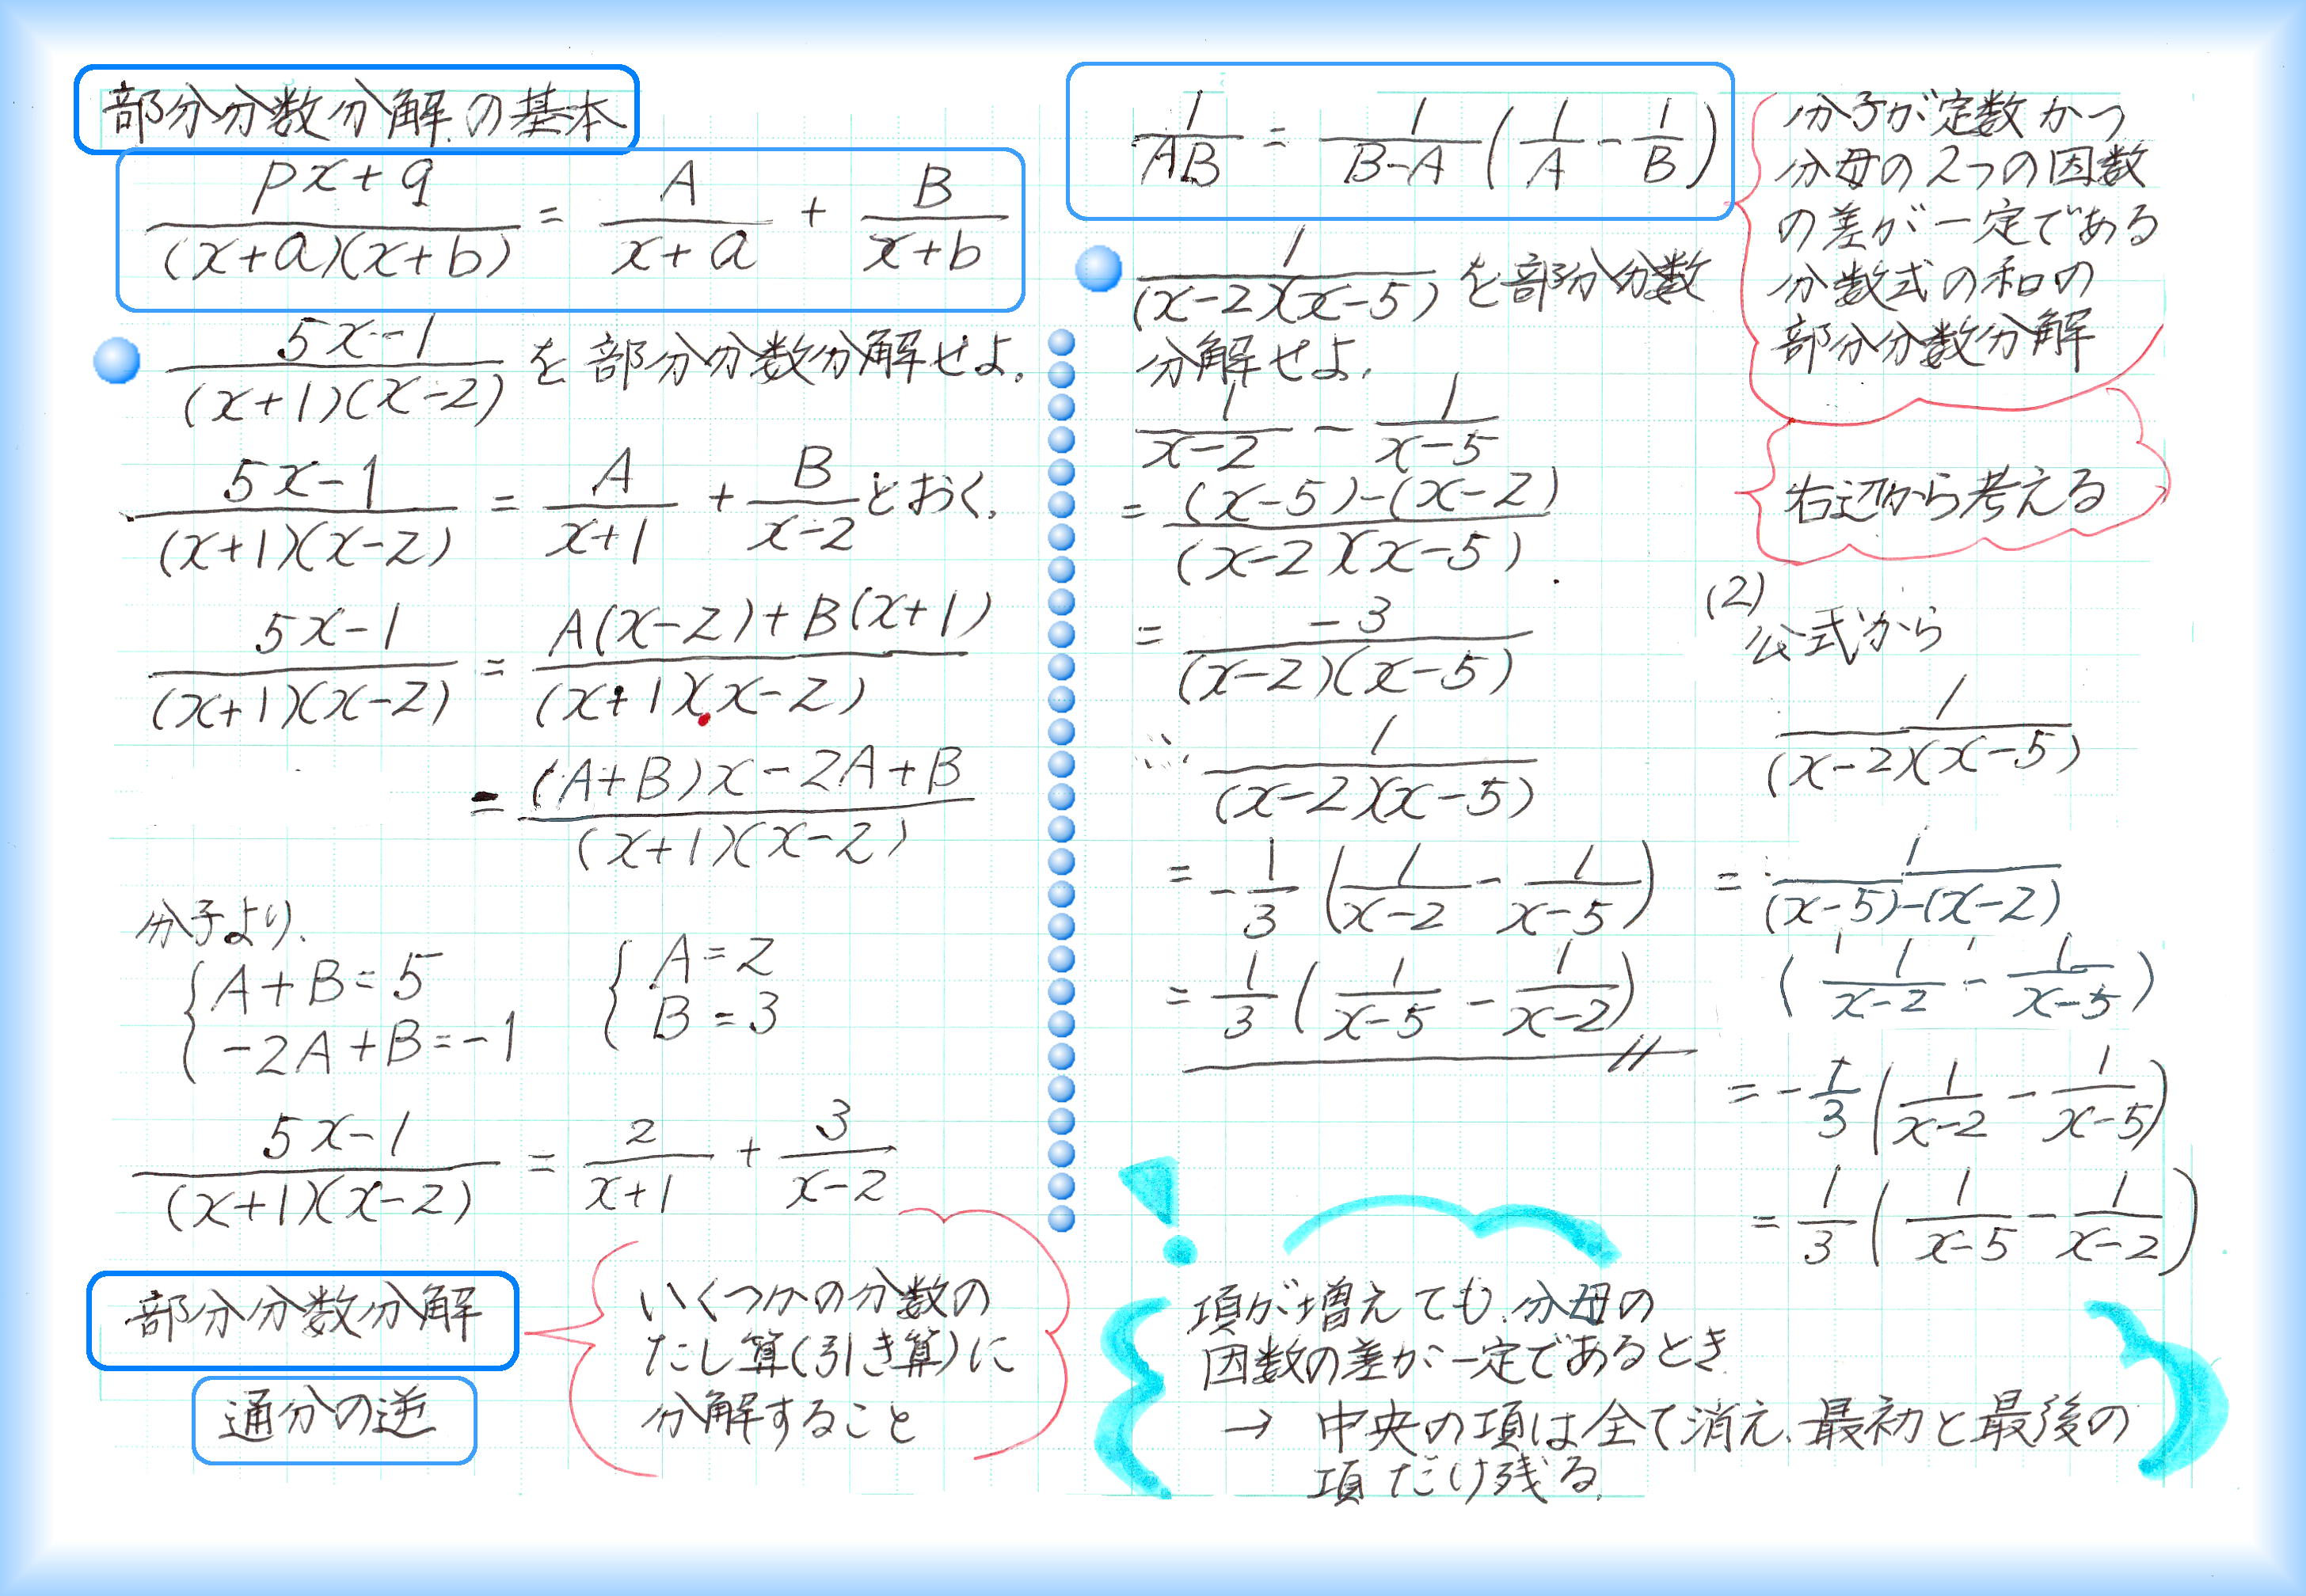 部分分数分解の基本
px+q/(x+a)(x+b) = A/x+a + B/x+b
5x-1/(x+1)(x-2) を部分分数分解せよ。
5x-1/(x+1)(x-2) = A/x+1 + B/x-2 とおく。
5x-1/(x+1)(x-2) = A(x-2)+B(x+1)/(x+1)(x-2)
= (A+B)x-2A+B/(x+1)(x-2)
分子より、
{A+B=5 {A=2
{-2A+B=-1 {B=3
5x-1/(x+1)(x-2) = 2/x+1 + 3/x-2
部分分数分解
通分の逆
いくつかの分数の
たし算(引き算)に
分解すること
1/AB = 1/B-A (1/A - 1/B)
分子が定数かつ
分母の2つの因数
の差が一定である
分数式の和の
部分分数分解
1/(x-2)(x-5) を部分分数
分解せよ.
右辺から考える
1/x-2 - 1/x-5
= (x-5)-(x-2)/(x-2)(x-5)
= -3/(x-2)(x-5)
∴ 1/(x-2)(x-5)
= -1/3 (1/x-2 - 1/x-5)
= 1/3 (1/x-5 - 1/x-2)
(2)
公式から
1/(x-2)(x-5)
= 1/(x-5)-(x-2)
(1/x-2 - 1/x-5)
= -1/3 (1/x-2 - 1/x-5)
= 1/3 (1/x-5 - 1/x-2)
項が増えても、分母の
因数の差が一定であるとき
→ 中央の項は全て消え、最初と最後の
項だけ残る。